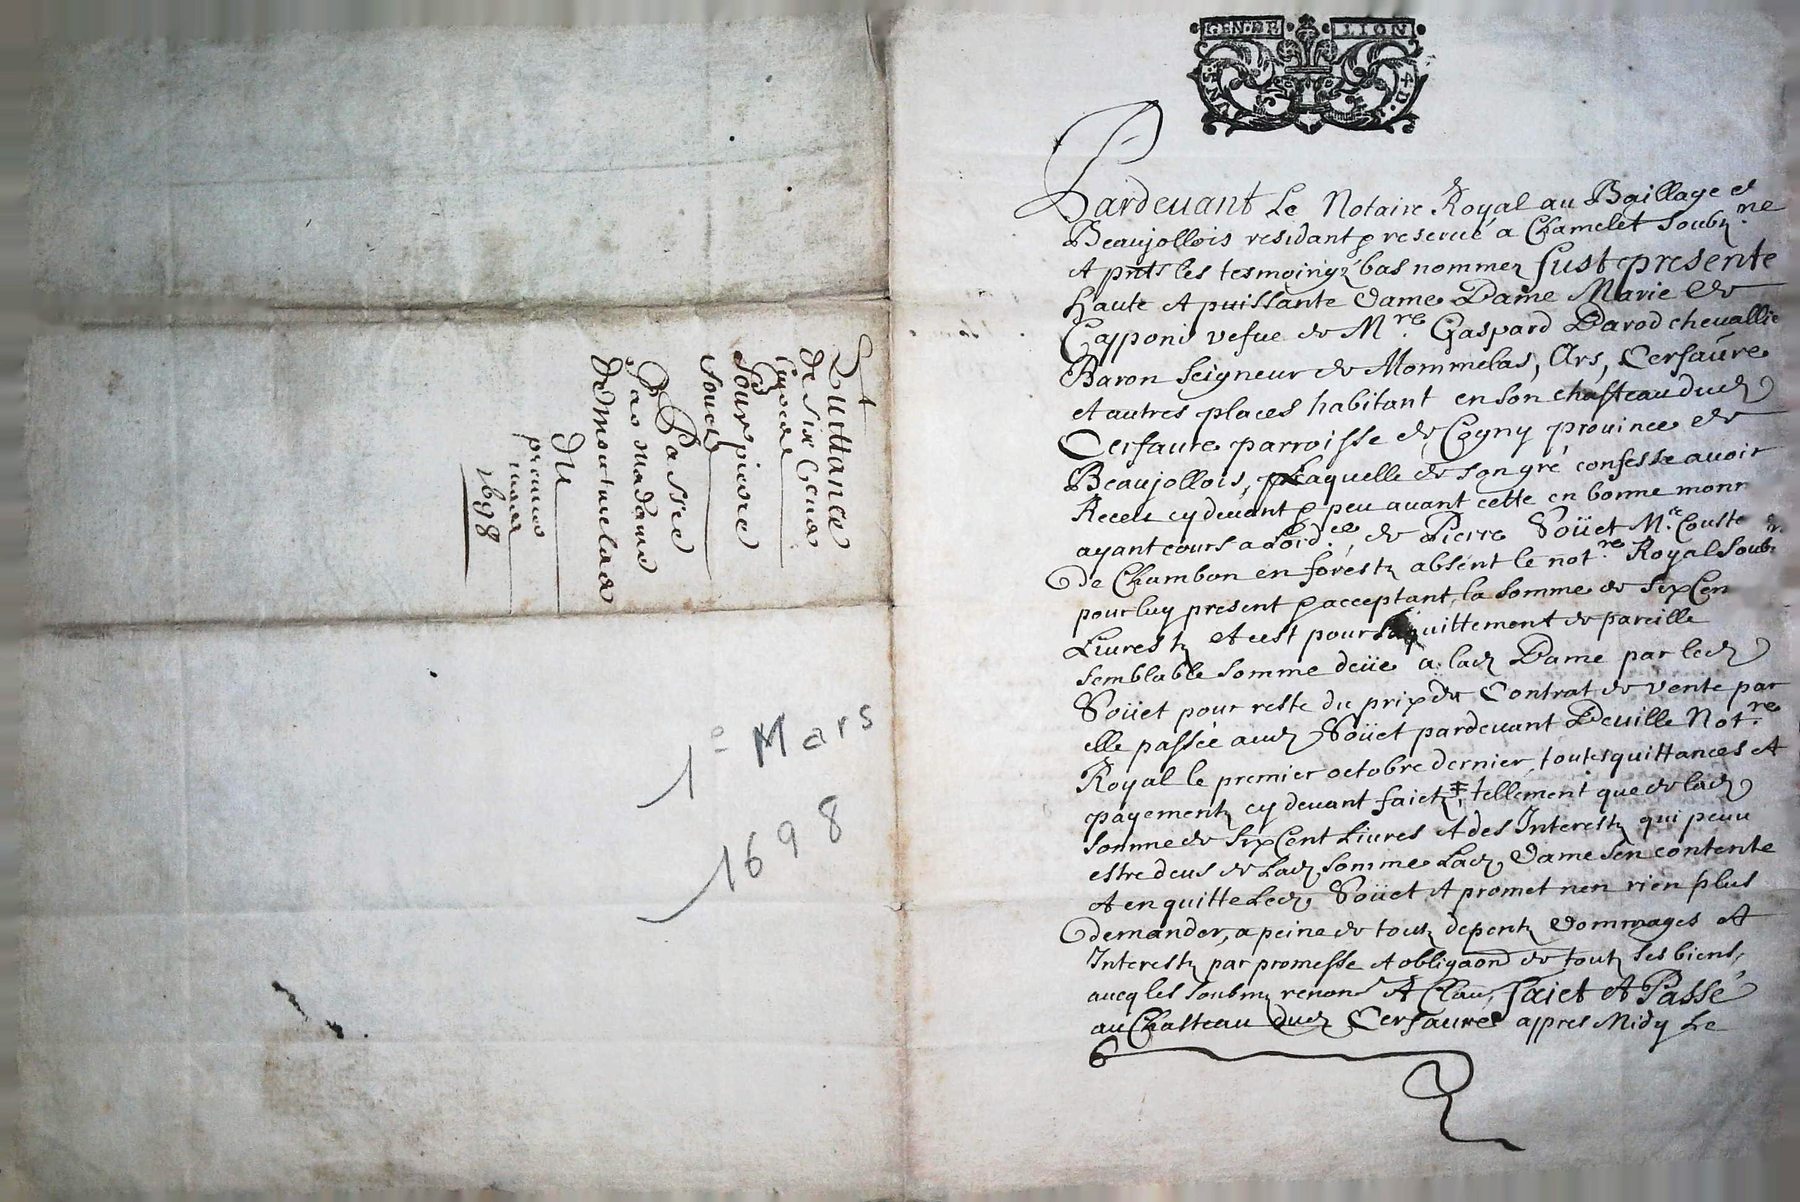 Quittance
de six Cens
livres
pour pierre
souet
Passée
par madame
de montmelas
du
premier
mars
1698
1e Mars
1698
GENER LION
Pardevant Le Notaire Royal au Baillage et
Beaujollois residant & reservé a Chamelet soubz.ne
& pnts les tesmoings bas nommez fust presente
haute & puissante dame Dame Marie de
Capponi vefue de M.re Gaspard Darod chevallie
Baron seigneur de Mommelas, Ars, Cersaure
et autres places habitant en son chasteau dud
Cersaure parroisse de Cogny prouince de
Beaujollois, Laquelle de son gré confesse auoir
Receu cy deuant & peu auant cette en bonne monn
ayant cours a Lord.ce, de Pierre Soüet M.e Couste
de Chambon en forestz absent le not.re Royal soubz
pour luy present & acceptant, la somme de six Cen
Liures tz & cest pour laquittement de pareille
semblable somme deüe a lad Dame par led
Soüet pour reste du prix du Contrat de vente par
elle passée aud Soüet pardeuant Deuille Not.re
Royal le premier octobre dernier, toutes quittances &
payementz cy deuant faictz, tellement que de lad
somme de six Cent Liures & des Interestz qui peuu
estre deus de Lad somme Lad Dame sen contente
& en quitte Led Soüet & promet nen rien plus
demander, a peine de tous depentz dommages &
Interestz par promesse & obligaond de toutz ses biens,
aucq les soubmz renond & Clau, faict & Passé
au Chasteau dud Cersaure appres Midy Le